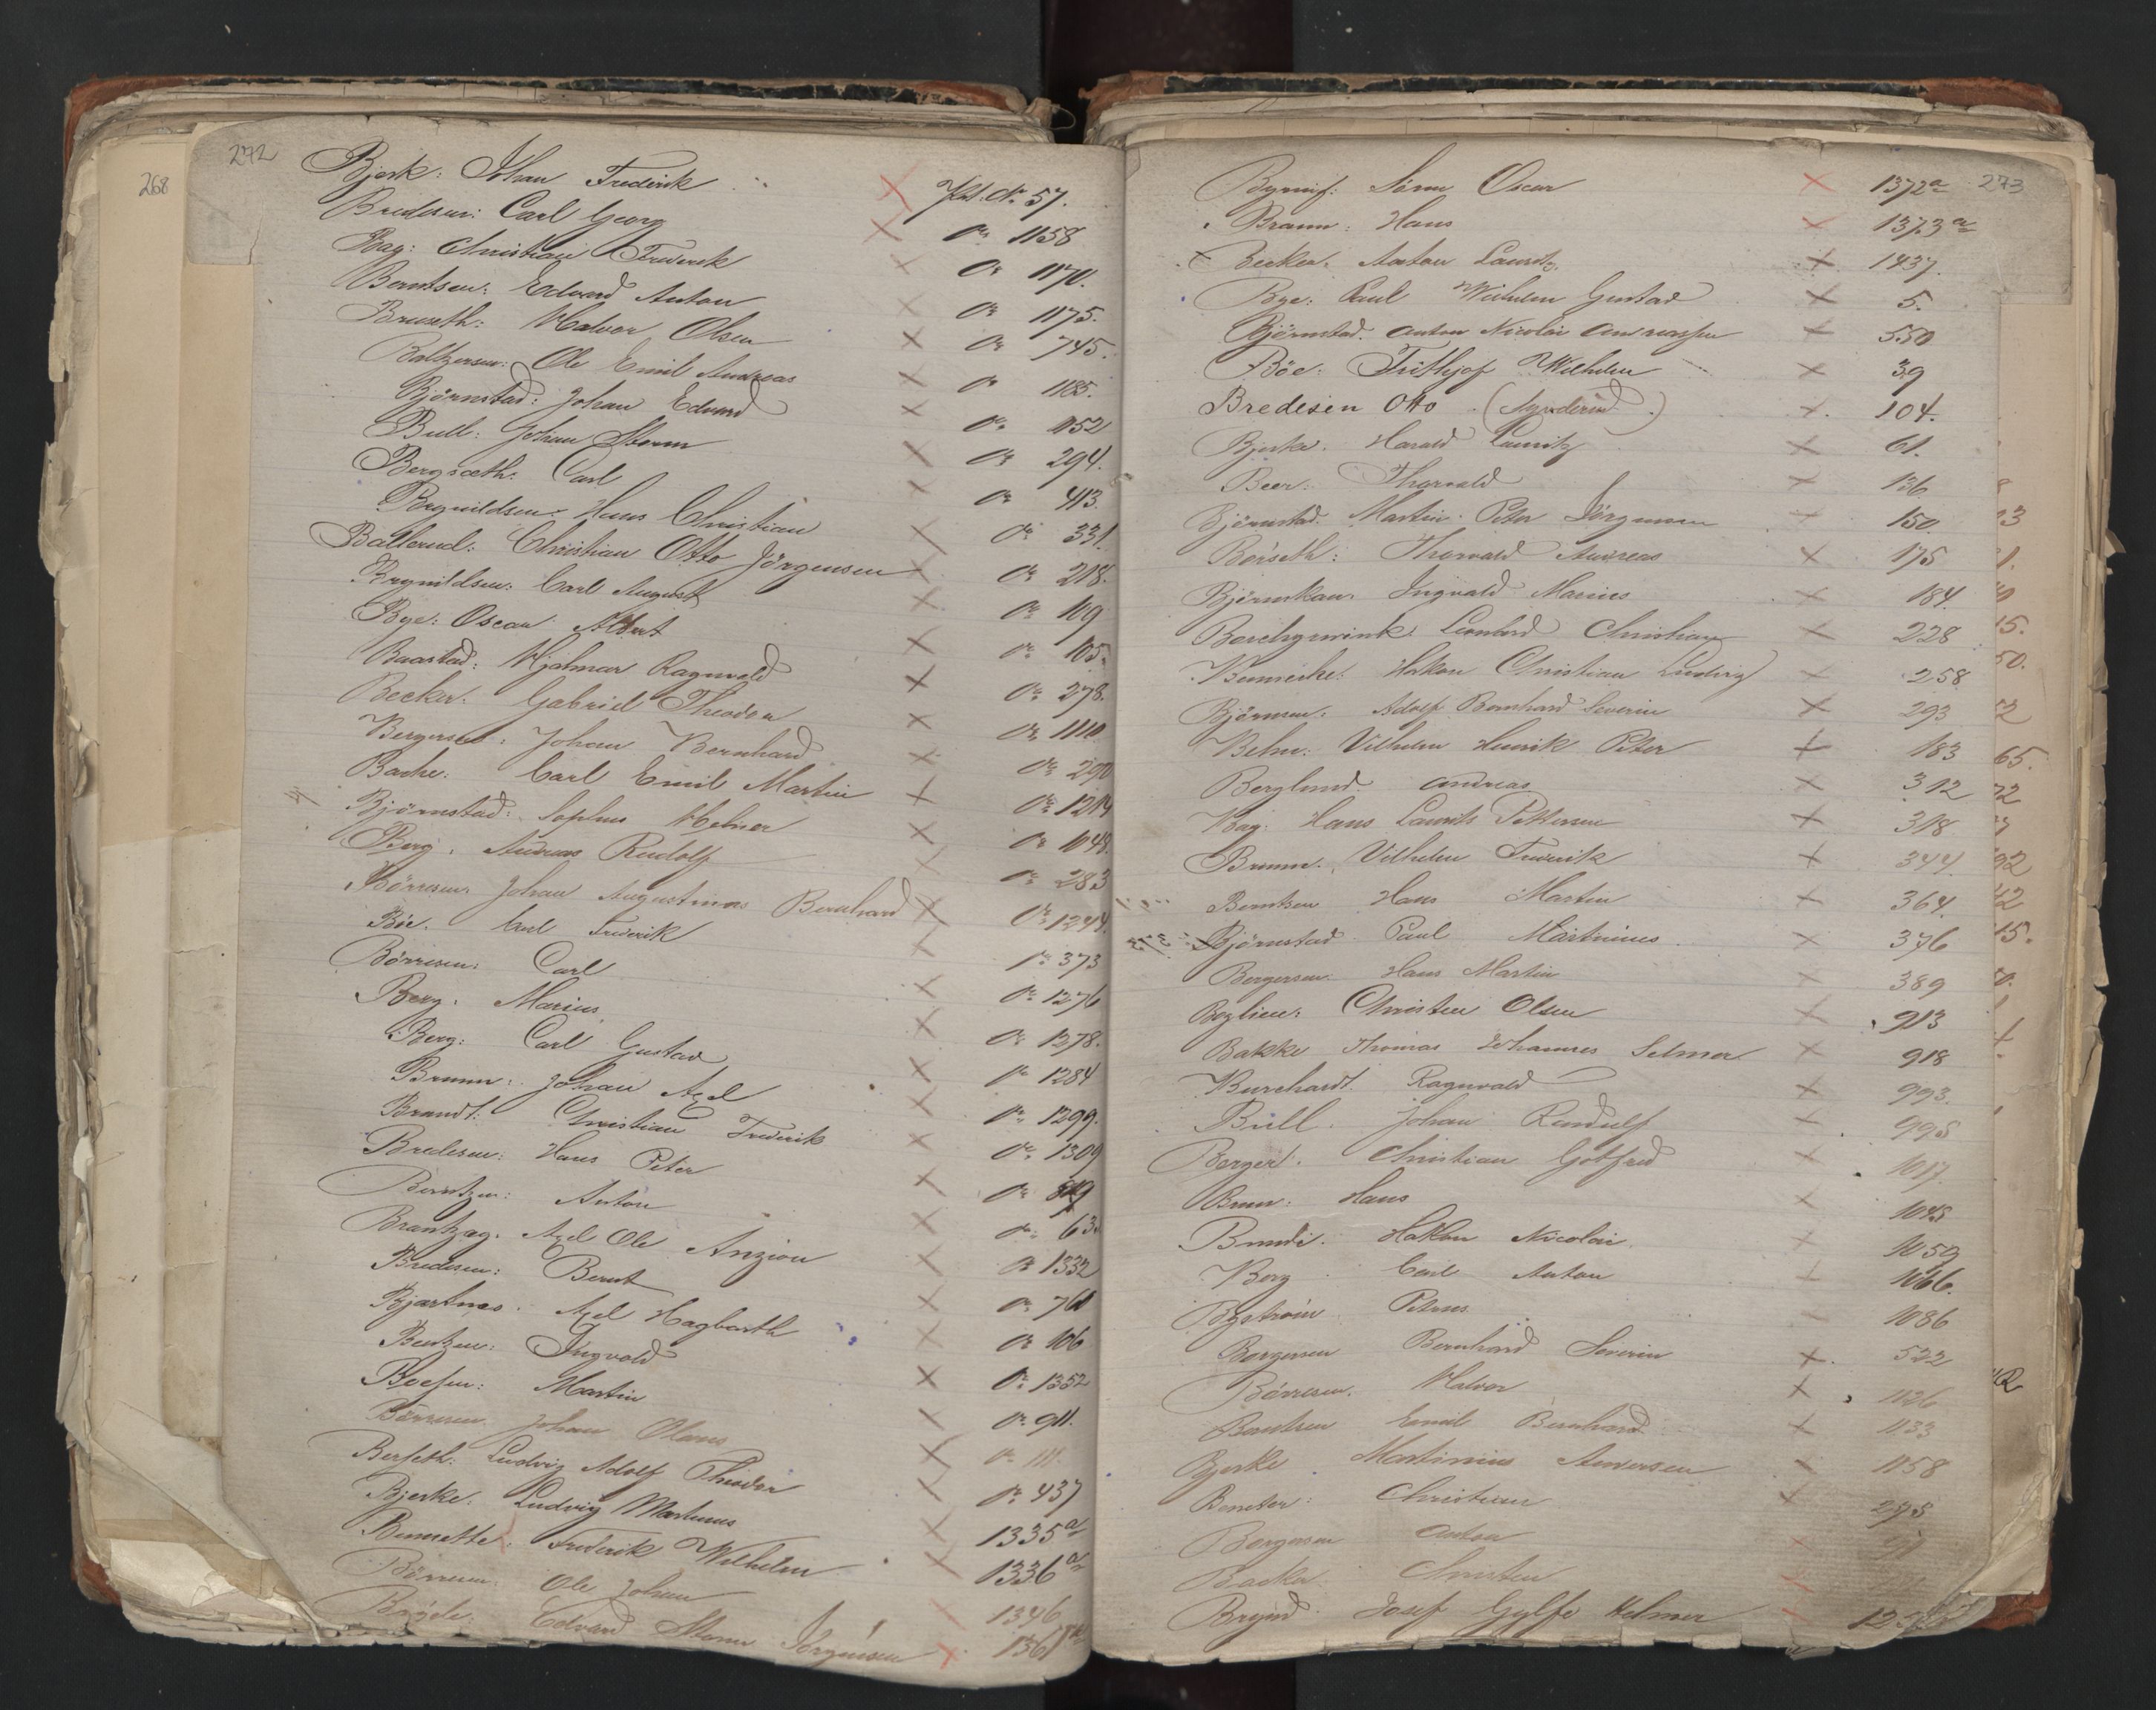 272
268
Bjerk: Johan Frederik × Pat. Nr 57.
Bredesen: Carl Georg × 1158
Bag: Christian Frederik × 1170.
Berntsen: Edvard Anton × 1175.
Bruseth: Halvor Olsen × 745.
Baltzersen: Ole Emil Andreas × 1185.
Bjørnstad: Johan Edvard × 1152
Bull: Johan Storm × 294.
Bergsæth: Carl × 413.
Bergnildsen: Hans Christian × 331.
Ballerud: Christian Otto Jörgensen × 218.
Brynildsen: Carl August × 119
Bye: Oscar Albert × 105.
Baastad: Hjalmar Ragnvald × 278.
Becker: Gabriel Theodor × 1110
Bergersen: Johan Bernhard × 290
Bache: Carl Emil Martin × 1214
Bjørnstad: Sophus Helmer × 1048.
Berg: Andreas Rudolf × 283
Børresen: Johan Augustinus Bernhard × 1244.
Böe: Carl Frederik × 373
Børresen: Carl × 1276
Berg: Marius × 1278.
Berg: Carl Gustav × 1284
Brunn: Johan Axel × 1299.
Brandt: Christian Frederik × 1309
Bredesen: Hans Peter × 819
Berntzen: Anton × 63.
Brantzæg. Axel Ole Anzion × 1332
Bredesen: Bernt × 761
Bjartnes. Axel Hagbarth × 106
Bentzen: Ingvald × 1352
Boesen: Martin × 911.
Børresen: Johan Olaus × 111.
Berseth: Ludvig Adolf Theodor × 437
Bjerke: Ludvig Martinus × 1335 a
Bennette: Frederik Wilhelm × 1336 a
Børresen: Ole Johan × 1346
Edvard Storm Jörgensen × 1361
273
Sörn Oscar × 1372 a
Braun: Hans × 1373 a
× Becker. Anton Lauritz. × 1437.
Bye: Paul Wilhelm Gustav × 5.
Bjørnstad. Anton Nicolai Andreassen × 550
Böe: Frithjof Wilhelm × 39
Bredesen Otto × 104.
Bjerke. Harald Lauritz × 61.
Beer: Thorvald × 136
Bjørnstad. Martin Peter Jörgensen × 150
Børseth: Thorvald Andreas × 175
Ingvald Marius × 184.
Borchgrevink. Leonhard Christian × 228
Bennecke: Hakon Christian Ludvig × 258
Bjørnsen: Adolf Bernhard Severin × 293
Behn: Vilhelm Henrik Peter × 183
Berglund Andreas × 312
Bag: Hans Laurits Pettersen × 318
Brunn. Vilhelm Frederik × 344.
Berntsen Hans Martin × 364.
Bjørnstad Paul Martinius × 376
Bergersen: Hans Martin × 389
Christen Olsen × 913
Bakke Thomas Johannes Selmer × 918
Burchardt. Ragnvald × 993.
Bull. Johan Randulf × 995
Berger. Christian Gotfred × 1017.
Brun: Hans × 1045
Hakon Nicolai × 1059
Berg Carl Anton × 1066.
Bystrøm Petrus 1086
Borgersen Bernhard Severin × 522
Børresen. Halvor × 1126
Berntsen Emil Bernhard × 1133
Bjerke Martinius Andersen × 1158
Christian × 275
Borgersen Anton ×
Backer Christen ×
Brynd Josef Gylfe Helmer × 125